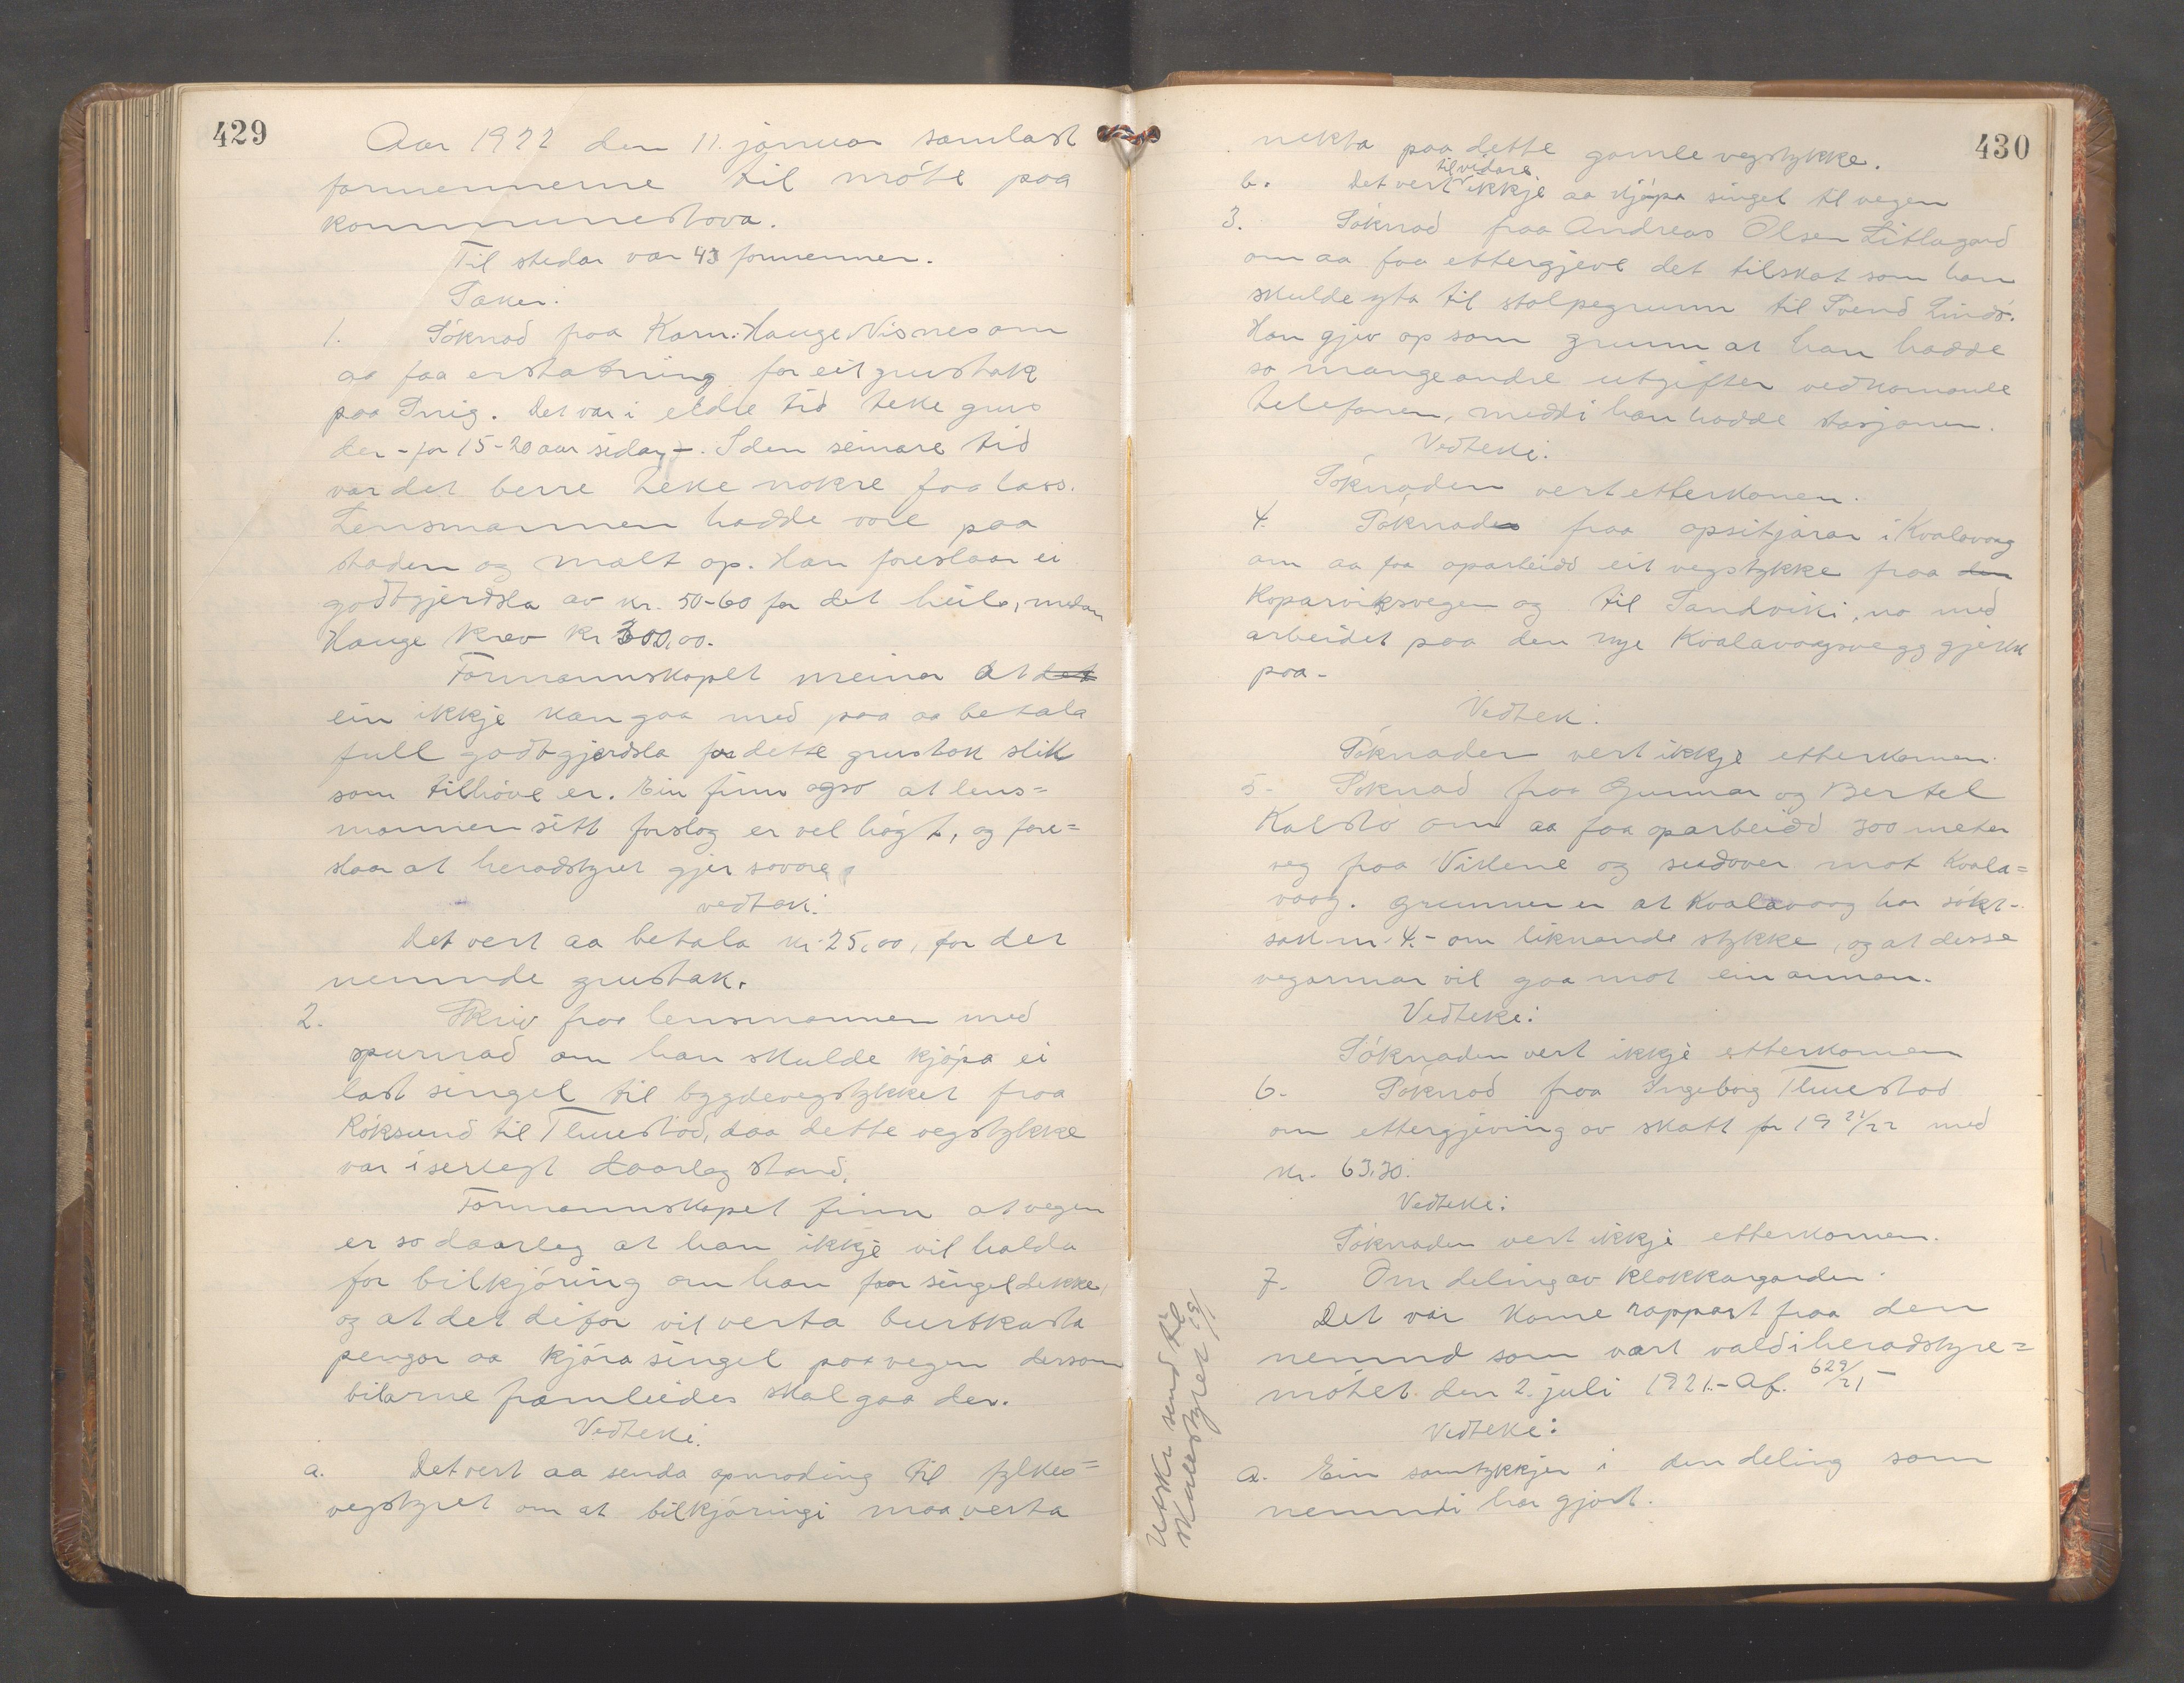 429
Aar 1922 den 11. januar samlast
formennerne til møte paa
kommunestova.
Til stedar var 43 formenner.
Saker:
1. Søknad fraa Karn. Hauge Visnes om
aa faa erstatning for eit grustak
paa Snig. Det var i eldre tid teke grus
der - for 15-20 aar sidan -. I den seinare tid
var det berre teke nokre faa lass.
Lensmannen hadde vore paa
staden og maalt op. Han foreslaar ei
godtgjerdsla av kr. 50-60 for det heile, medan
Hauge krev kr 300,00.
Formannskapet meiner at det
ein ikkje kan gaa med paa aa betala
full godtgjerdsla for dette grustak slik
som tilhøve er. Ein finn ogso at lens=
mannen sitt forslag er vel høgt, og fore=
slaar at heradstyret gjer sovore
vedtak:
Det vert aa betala kr. 25,00, for det
nemnde grustak.
2. Skriv fraa lensmannen med
spurnad om han skulde kjøpa ei
last singel til bygdevegstykket fraa
Røksund til Tuestad, daa dette vegstykke
var i serlegt daarleg stand.
Formannskapet finn at vegen
er so daarleg at han ikkje vil halda
for bilkjøring om han faar singeldekke,
og at det difor vil verta burtkasta
pengar aa kjøra singel paa vegen dersom
bilarne framleides skal gaa der.
Vedteke:
a. Det vert aa senda opmoding til fylkes=
vegstyret om at bilkjøringi maa verta
430
nekta paa dette gamle vegstykke.
tilvidare
b. Det vert ikkje aa kjøpa singel til vegen
3. Søknad fraa Andreas Olsen Litlagard
om aa faa ettergjeve det tilskot som han
skulde yta til stolpegrunn til Svend Lindø.
Han gjev op som grunn at han hadde
so mange andre utgifter vedkomande
telefonen, meddi han hadde stasjonen.
Vedteke:
Søknaden vert etterkomen.
4. Søknader fraa opsitjarar i Kvalavaag
om aa faa oparbeidd eit vegstykke fraa den
Koparviksvegen og til Sandviki, no med
arbeidet paa den nye Kvalavaagsvegg gjekk
paa -
Vedtek:
Søknaden vert ikkje etterkomen.
5. Søknad fraa Gunnar og Bertel
Kalstø om aa faa oparbeidd 300 meter
veg fraa Vikene og sudover mot Kvala=
vaag. Grunnen er at Kvalavaag har søkt -
sak nr. 4. - om liknande stykke, og at desse
vegarmar vil gaa mot ein annan.
Vedteke:
Søknaden vert ikkje etterkomen
6. Søknad fraa Ingeborg Tuestad
om ettergjeving av skatt for 19 21/22 med
kr. 63,30.
Vedteke:
Søknaden vert ikkje etterkomen.
7. Om deling av klokkargarden.
Det var kome rapport fraa den
nemnd som vart vald i heradstyre=
møtet den 2. juli 1921. - Af. 629/21 -
Vedteke:
a. Ein samtykkjer i den deling som
nemndi har gjort.
Utskr. send til
skulestyret